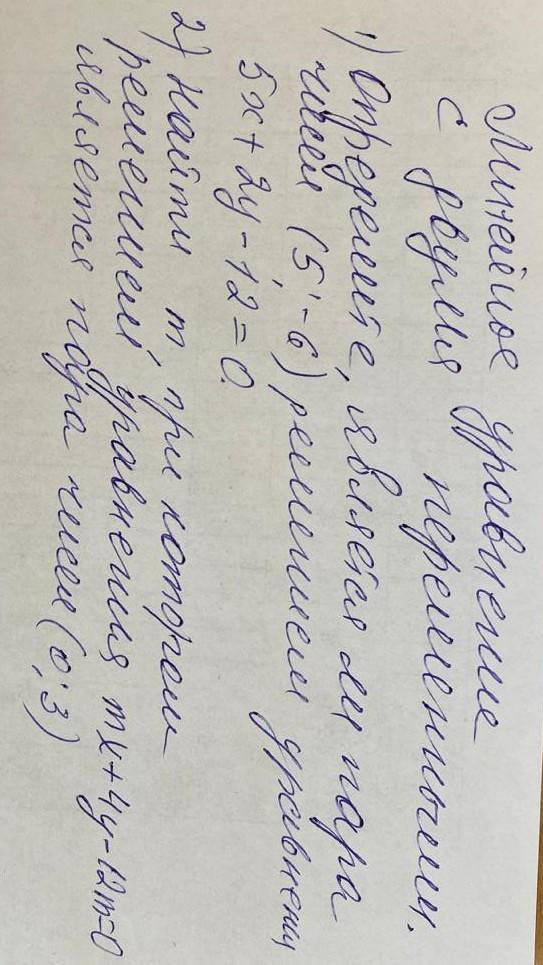 Линейное уравнение
с двумя переменными.
1) Определите, является ли пара
чисел (5; -6) решением уравнения
5x + 2y - 12 = 0.
2) Найти m, при котором
решением уравнения mx+4y-12m=0
является пара чисел (0; 3)